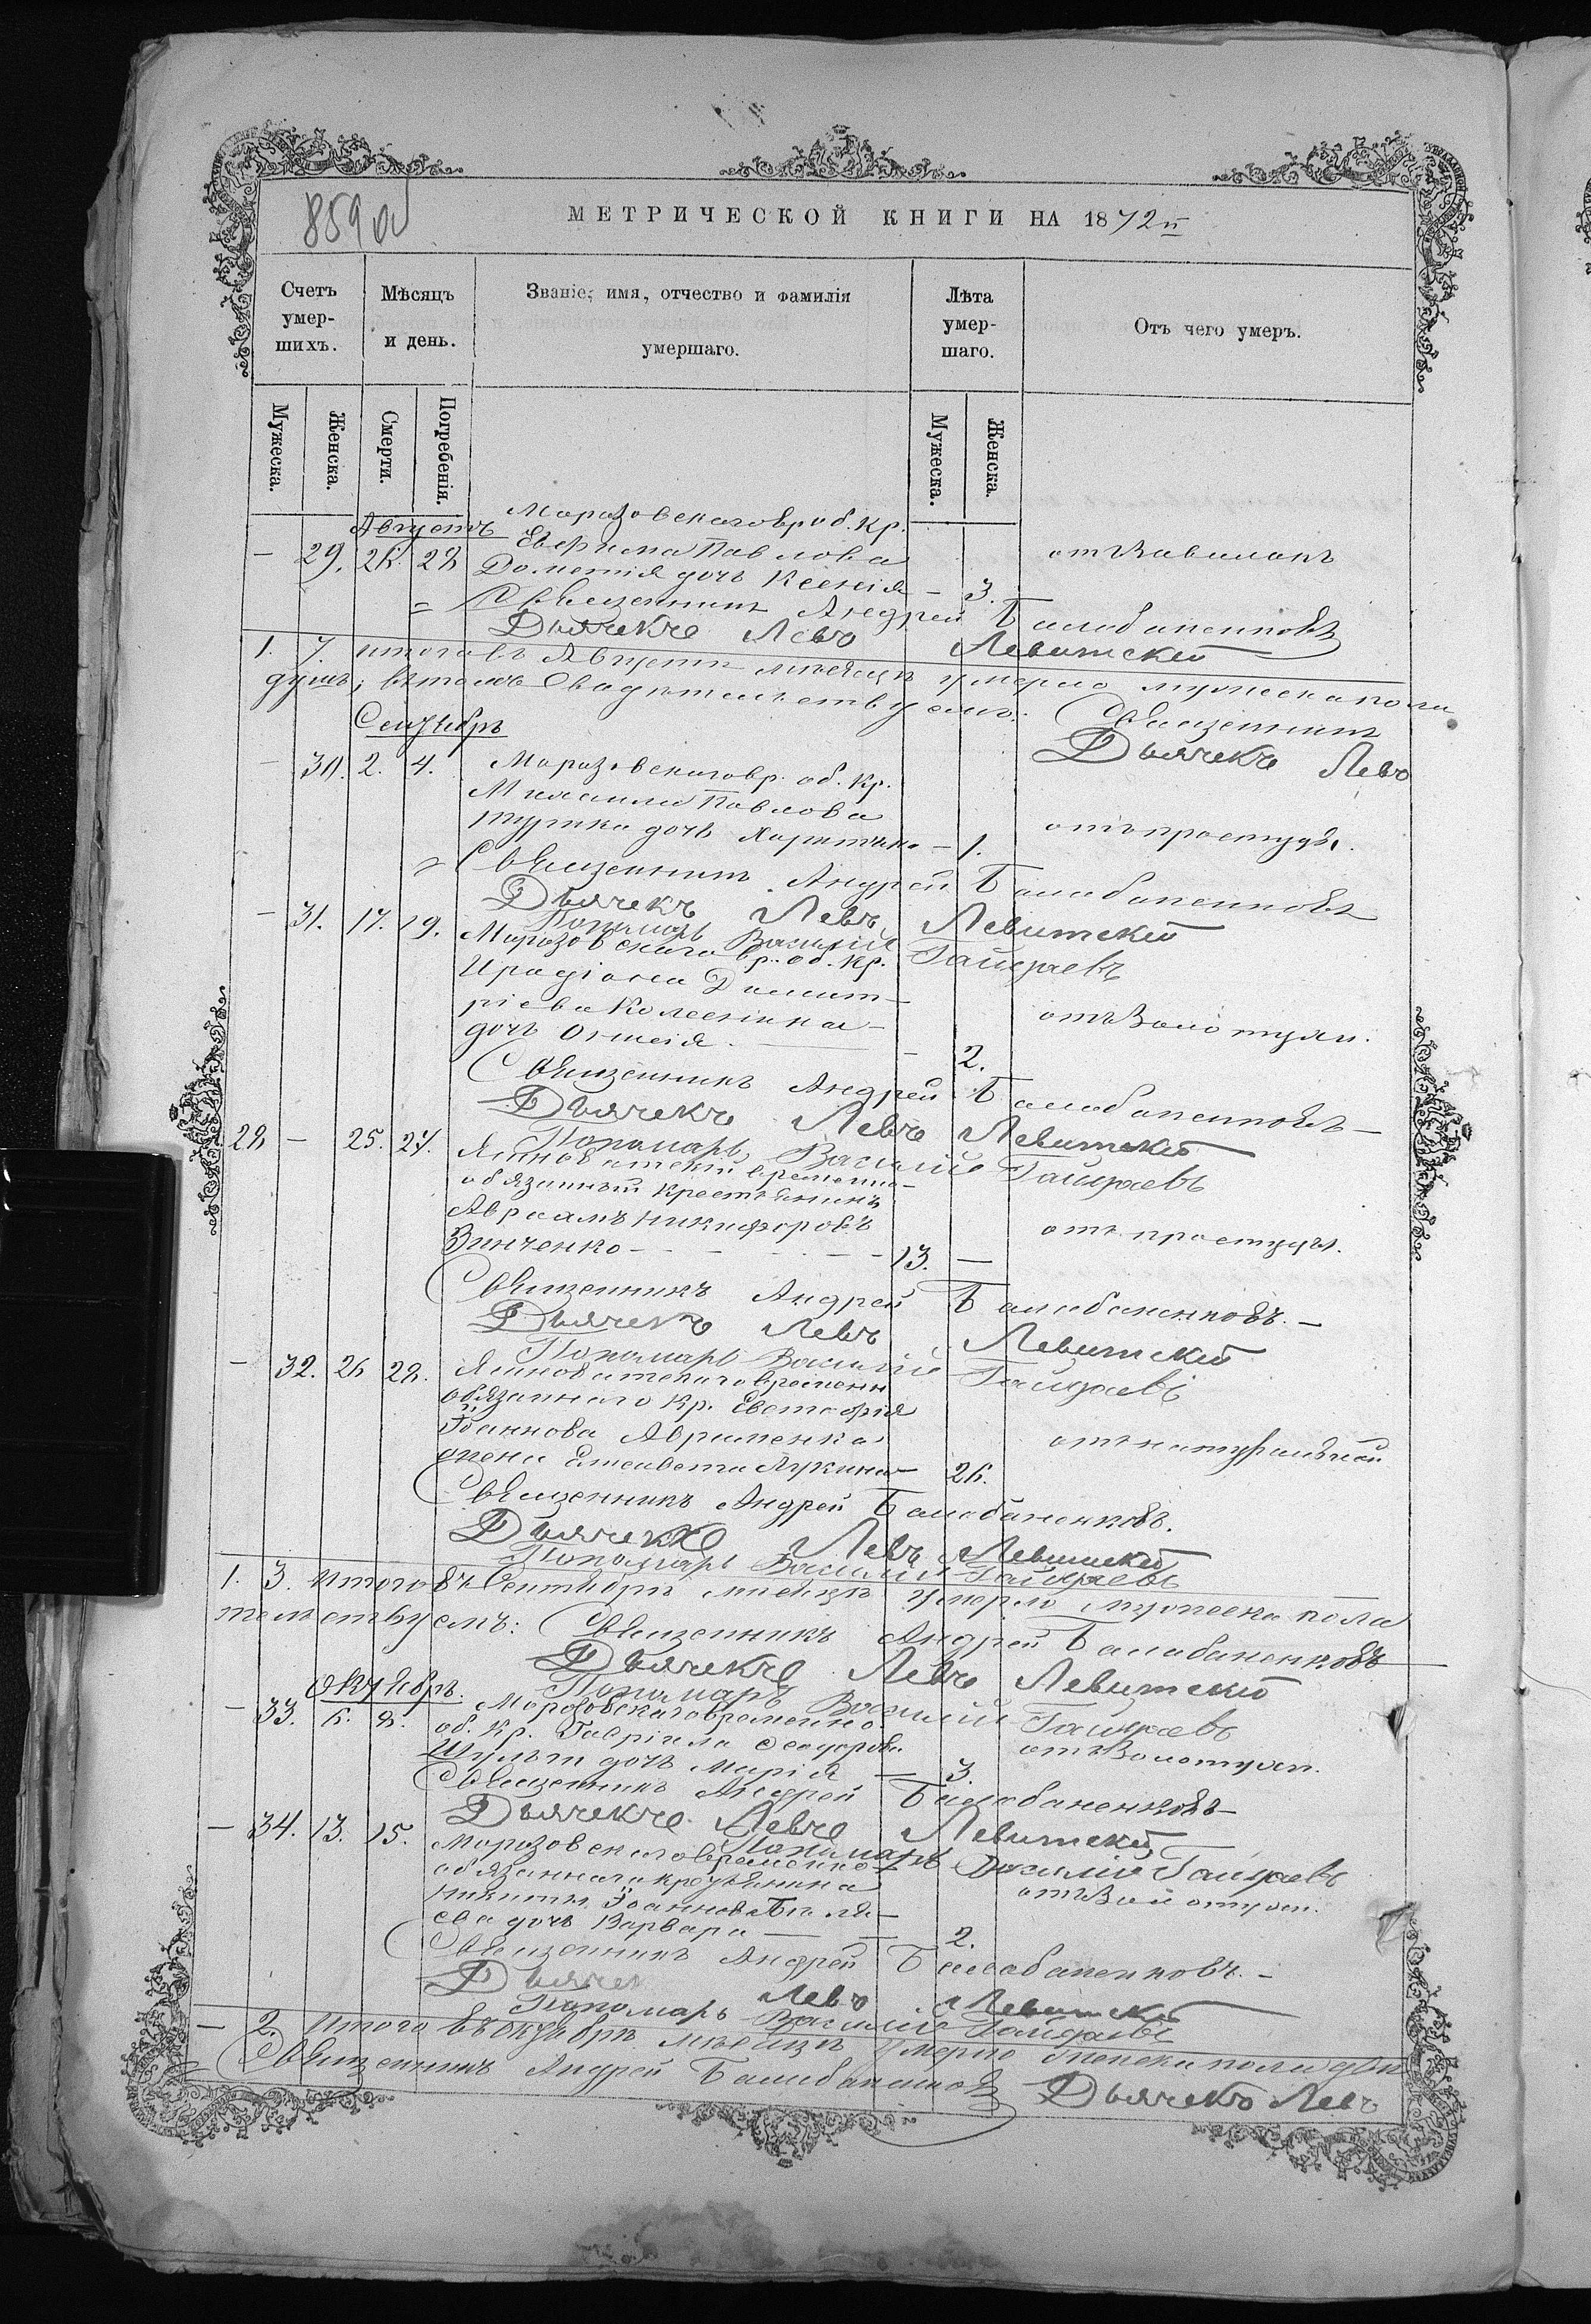 859 об
МЕТРИЧЕСКОЙ КНИГИ НА 1872й
Счетъ умер-шихъ.
Мѣсяцъ и день.
Званіе, имя, отчество и фамилія умершаго.
Лѣта умер-шаго.
Отъ чего умеръ.
Мужеска. Женска. Смерти. Погребенія. Мужеска. Женска.
Августъ
Морозовскаго вр об. кр.
— 29. 26. 28 Павлова
дочь Ксенія — 3.
Священникъ Андрей Балабаненковъ
Дьячекъ Левъ Левитскій
1. 7. итого въ Августѣ мѣсяцѣ умерло мужеска пола
душъ; въ томъ свидѣтельствуемъ: Священникъ
Дьячекъ Левъ
Сентябрь
— 30. 2. 4. Морозовскаго вр. об. кр.
Михаила Павлова
дочь Харитина — 1. отъ простуды.
Священникъ Андрей Балабаненковъ
Дьячекъ Левъ Левитскій
Пономарь Василій
— 31. 17. 19. Морозовскаго вр. об. кр.
Иродіона Димит-
ріева Колесника
дочь — 2. отъ золотухи.
Священникъ Андрей Балабаненковъ
Дьячекъ Левъ Левитскій
Пономарь Василій
28 — 25. 27. временно-
обязанный крестьянинъ
Авраамъ Никифоровъ
Зинченко — 13. — отъ простуды.
Священникъ Андрей Балабаненковъ. —
Дьячекъ Левъ Левитскій
Пономарь Василій
— 32. 26 28. временно
обязаннаго кр. Евстафія
Іоаннова Авраменка
жена Елисавета Лукина — 26.
Священникъ Андрей Балабаненковъ.
Дьячекъ Левъ Левитскій
Пономарь Василій
1. 3. Итого въ Сентябрѣ мѣсяцѣ умерло мужеска пола
тельствуемъ: Священникъ Андрей Балабаненковъ
Дьячекъ Левъ Левитскій
Пономарь Василій
Октябрь.
— 33. 6. 8. Морозовскаго временно
об. кр. Гавріила Ѳеодорова
дочь Марія — 3. отъ золотухи.
Священникъ Андрей Балабаненковъ
Дьячекъ Левъ Левитскій
Пономарь Василій
— 34. 13. 15. Морозовскаго временно-
обязаннаго крестьянина
Никиты Іоаннова
дочь Варвара — 2. отъ золотухи.
Священникъ Андрей Балабаненковъ. —
Дьячекъ Левъ Левитскій
Пономарь Василій
— 2. Итого въ октябрѣ мѣсяцѣ умерло женска пола двѣ
Священникъ Андрей Балабаненковъ Дьячекъ Левъ